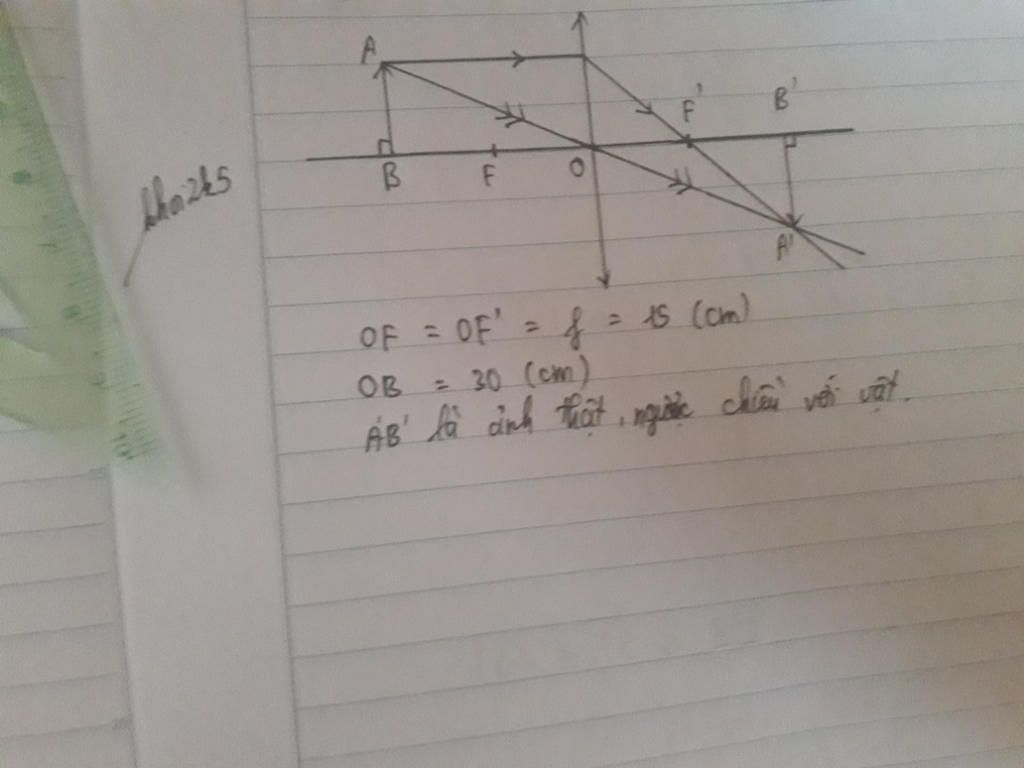 A
F'
B'
B
F
O
A'
khoi2k5
OF = OF' = f = 15 (cm)
OB = 30 (cm)
A'B' là ảnh thật, ngược chiều với vật.